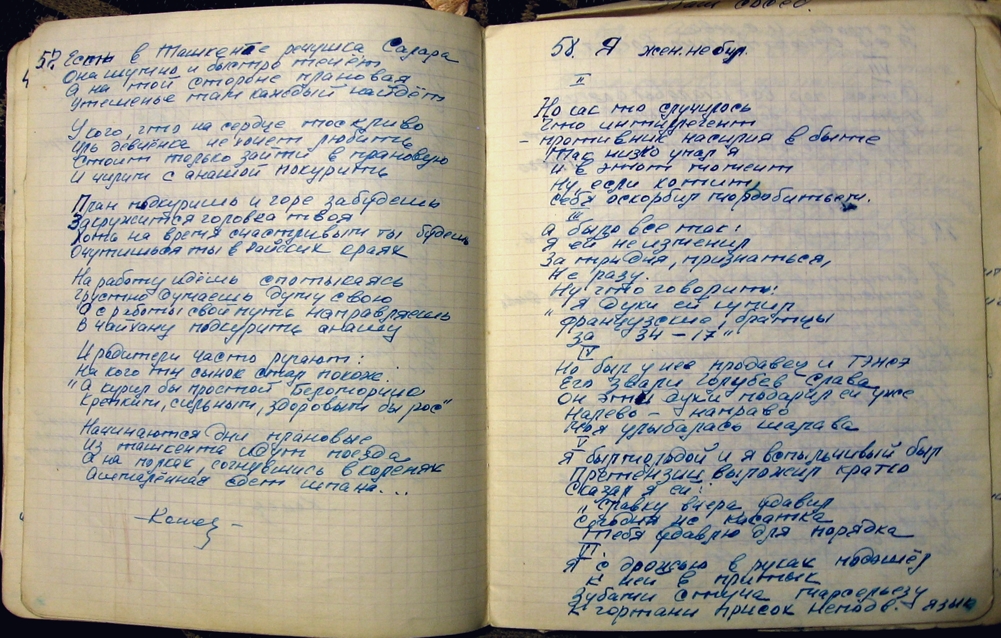 57. Есть в Ташкенте речушка Салара
Она шумно и быстро течёт
А на той стороне плановая
Утешенье там каждый найдёт
У кого, что на сердце тоскливо
Иль девчёнка не хочет любить
Стоит только зайти в плановую
И чилим с анашой покурить
План подкуришь и горе забудешь
Загружится головка твоя
Хоть на время счастливым ты будешь
Очутишься ты в райских краях
На работу идёшь спотыкаясь
Грустно думаешь думу свою
А с работы свой путь направляешь
В чайхану подкурить анашу
И родители часто ругают:
На кого ты сынок стал похож.
"А курил бы простой Беломорина
Крепким, сильным, здоровым бы рос"
Начинаются дни плановые
Из Ташкента идут поезда
А на полках, согнувшись в коленях
едет шпана...
-Конец-
58. Я жен.не был
II
Но как то случилось
Что интеллигент
- противник насилия в быте
Так низко упал я
И в этот момент
Ну, если хотите,
Себя оскорбил мордобитьем.
III
А было все так:
Я ей не изменил
За три дня, признаться,
Не разу.
Ну что говорить:
"Я духи ей купил
Французские, братцы
За 34-17"
IV
Но был у неё продавец и ТЭЖЭ
Его звали Голубев Слава
Он эти духи подарил ей уже
Налево - направо
Моя улыбалась шалава
V
Я был молодой и я вспыльчивый был
Претензии выложил кратко
Сказал я ей:
"Славку вчера удавил
Сегодня
Тебя удавлю для порядка
VI
Я с дрожью в руках подошёл
К ней в притык
Зубами стуча марсельезу
К гортани присох язык